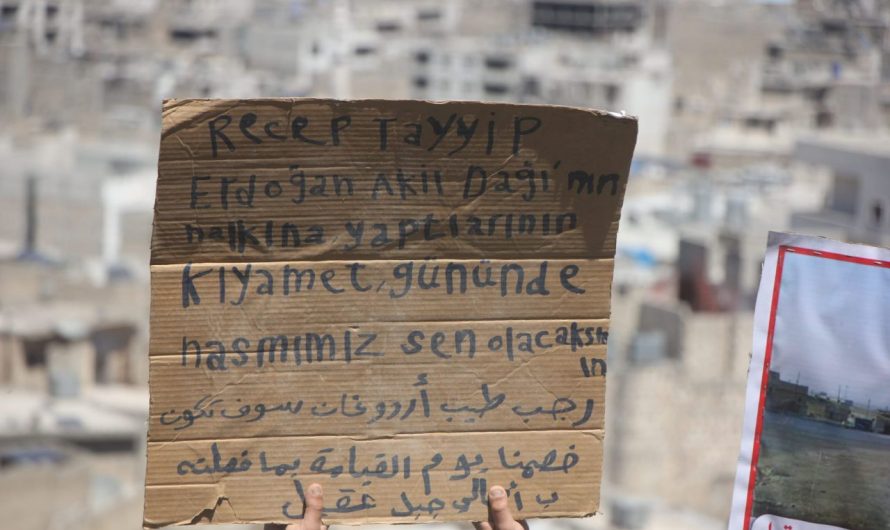 Recep Tayyip
Erdoğan Akil Daği'nın
halkına yaptlarının
Kıyamet gününde
hasmımız sen olacaksın
رجب طيب أردوغان سوف تكون
خصمنا يوم القيامة بما فعلته
ب أهالي جبل عقيل